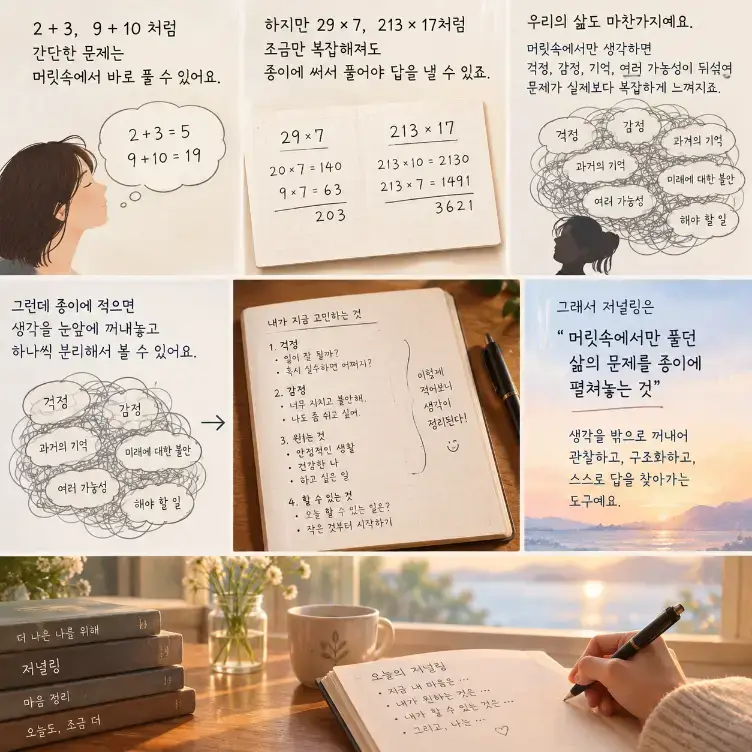 2 + 3, 9 + 10 처럼
간단한 문제는
머릿속에서 바로 풀 수 있어요.
2 + 3 = 5
9 + 10 = 19
하지만 29 × 7, 213 × 17처럼
조금만 복잡해져도
종이에 써서 풀어야 답을 낼 수 있죠.
29 × 7
20 × 7 = 140
9 × 7 = 63
203
213 × 17
213 × 10 = 2130
213 × 7 = 1491
3621
우리의 삶도 마찬가지예요.
머릿속에서만 생각하면
걱정, 감정, 기억, 여러 가능성이 뒤섞여
문제가 실제보다 복잡하게 느껴지죠.
걱정
감정
과거의 기억
과거의 기억
미래에 대한 불안
여러 가능성
해야 할 일
그런데 종이에 적으면
생각을 눈앞에 꺼내놓고
하나씩 분리해서 볼 수 있어요.
걱정
감정
과거의 기억
미래에 대한 불안
여러 가능성
해야 할 일
내가 지금 고민하는 것
1. 걱정
• 일이 잘 될까?
• 혹시 실수하면 어쩌지?
2. 감정
• 너무 지치고 불안해.
• 나도 좀 쉬고 싶어.
3. 원하는 것
• 안정적인 생활
• 건강한 나
• 하고 싶은 일
4. 할 수 있는 것
• 오늘 할 수 있는 일은?
• 작은 것부터 시작하기
이렇게
적어보니
생각이
정리된다!
그래서 저널링은
“ 머릿속에서만 풀던
삶의 문제를 종이에
펼쳐놓는 것”
생각을 밖으로 꺼내어
관찰하고, 구조화하고,
스스로 답을 찾아가는
도구예요.
더 나은 나를 위해
저널링
마음 정리
오늘도, 조금 더
오늘의 저널링
• 지금 내 마음은 ...
• 내가 원하는 것은 ...
• 내가 할 수 있는 것은 ...
• 그리고, 나는 ...